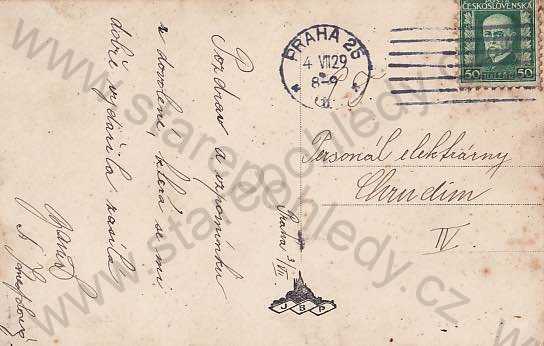 ČESKOSLOVENSKÁ
50 50
PRAHA 25
4 VII 29
8-9
Pozdrav a vzpomínku
z dovolené, která se mi
dobře vydařila zasílá
Personál elektrárny
Chrudim
IV.
Praha 3/VII.
J B P
www.starepohledy.cz